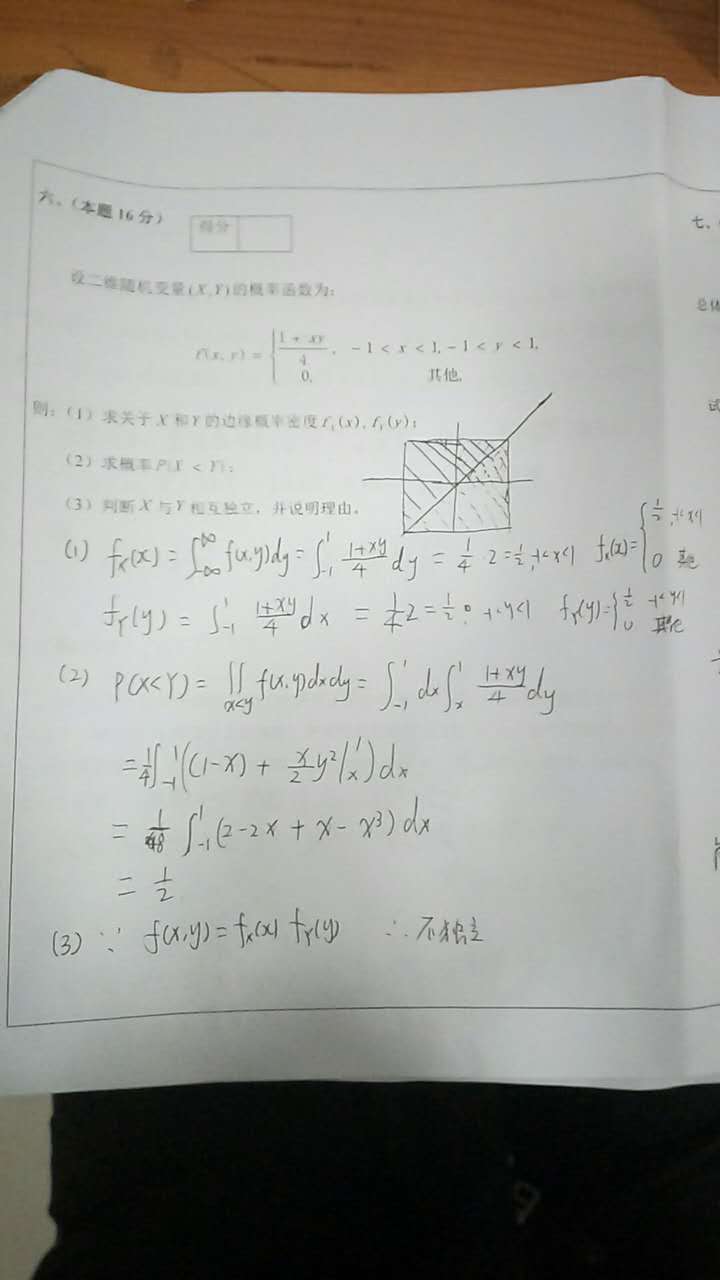 六、(本题 16 分)
得分
七、
设二维随机变量(X,Y)的概率函数为:
总体
f(x, y) = { (1 + xy)/4, -1 < x < 1, -1 < y < 1,
0, 其他,
则:(1)求关于 X 和 Y 的边缘概率密度 f_X(x), f_Y(y);
试
(2)求概率 P(X < Y);
(3)判断 X 与 Y 相互独立,并说明理由。
(1) f_X(x) = ∫_{-∞}^{∞} f(x,y)dy = ∫_{-1}^{1} (1+xy)/4 dy = 1/4 · 2 = 1/2, -1<x<1 f_X(x) = { 1/2, -1<x<1
0 其他
f_Y(y) = ∫_{-1}^{1} (1+xy)/4 dx = 1/4 2 = 1/2 -1<y<1 f_Y(y) = { 1/2 -1<y<1
0 其他
(2) P(X<Y) = ∬_{x<y} f(x,y)dxdy = ∫_{-1}^{1} dx ∫_{x}^{1} (1+xy)/4 dy
= 1/4 ∫_{-1}^{1} ((1-x) + x/2 y²|_{x}^{1}) dx
= 1/8 ∫_{-1}^{1} (2-2x + x - x³) dx
= 1/2
(3) ∵ f(x,y) = f_X(x) f_Y(y) ∴ 不独立